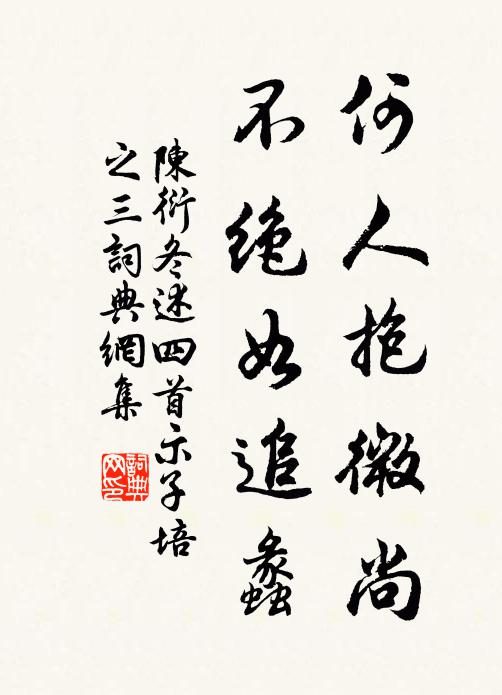 何人抱微尚
不绝如追蠡
陳衍冬述四首示子培
之三詞典網集
詞典網印